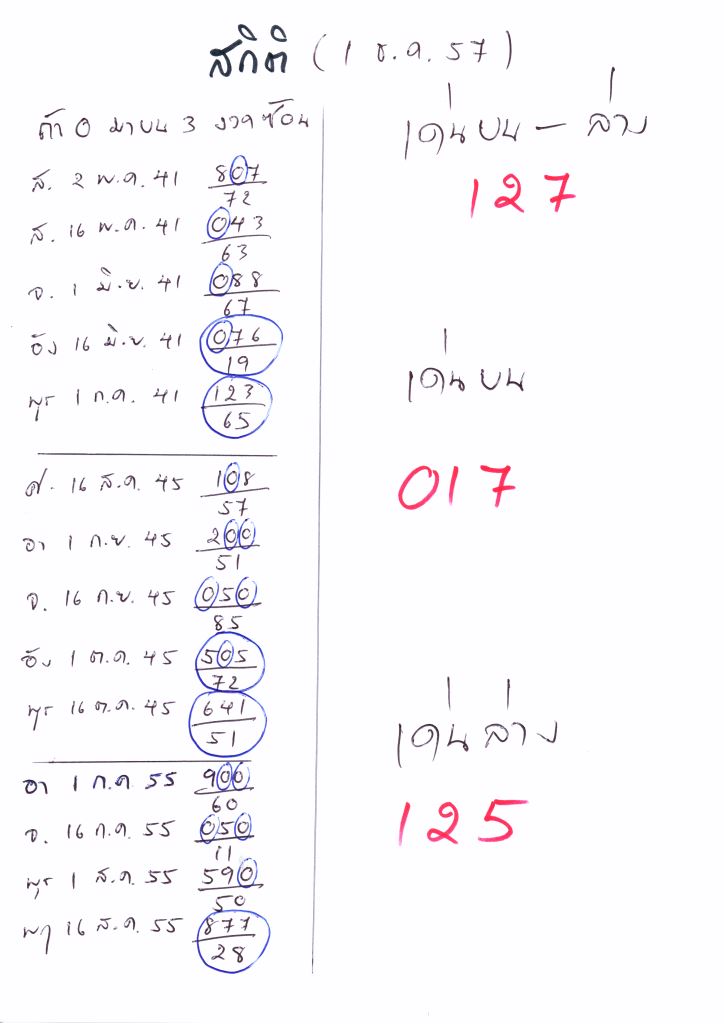 สถิติ (1 ธ.ค. 57)
ถ้า 0 มาบน 3 งวดซ้อน
ส. 2 พ.ค. 41 807
72
ส. 16 พ.ค. 41 043
63
จ. 1 มิ.ย. 41 088
67
อัง 16 มิ.ย. 41 076
19
พุธ 1 ก.ค. 41 123
65
ศ. 16 ส.ค. 45 108
57
อา 1 ก.ย. 45 200
51
จ. 16 ก.ย. 45 050
85
อัง 1 ต.ค. 45 505
72
พุธ 16 ต.ค. 45 641
51
อา 1 ก.ค 55 900
60
จ. 16 ก.ค. 55 050
11
พุธ 1 ส.ค. 55 590
50
พฤ 16 ส.ค. 55 877
28
เด่นบน – ล่าง
127
เด่นบน
017
เด่นล่าง
125